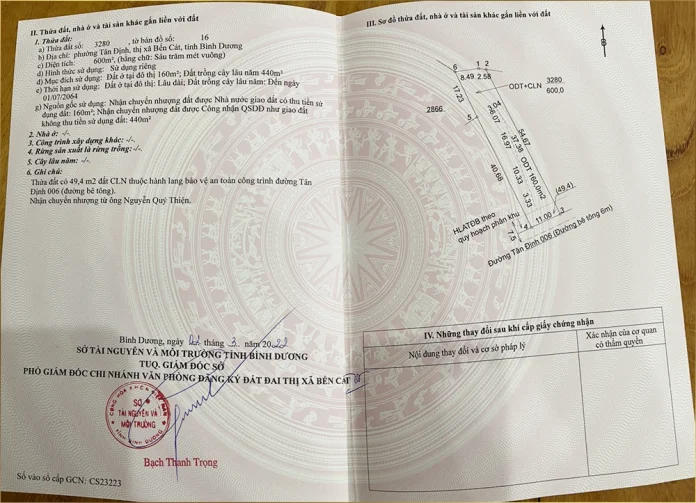 II. Thửa đất, nhà ở và tài sản khác gắn liền với đất
1. Thửa đất:
a) Thửa đất số: 3280, tờ bản đồ số: 16
b) Địa chỉ: phường Tân Định, thị xã Bến Cát, tỉnh Bình Dương
c) Diện tích: 600m², (bằng chữ: Sáu trăm mét vuông)
d) Hình thức sử dụng: Sử dụng riêng
đ) Mục đích sử dụng: Đất ở tại đô thị 160m²; Đất trồng cây lâu năm 440m²
e) Thời hạn sử dụng: Đất ở tại đô thị: Lâu dài; Đất trồng cây lâu năm: Đến ngày
01/07/2064
g) Nguồn gốc sử dụng: Nhận chuyển nhượng đất được Nhà nước giao đất có thu tiền sử
dụng đất: 160m²; Nhận chuyển nhượng đất được Công nhận QSDĐ như giao đất
không thu tiền sử dụng đất: 440m²
2. Nhà ở: -/-.
3. Công trình xây dựng khác: -/-.
4. Rừng sản xuất là rừng trồng: -/-.
5. Cây lâu năm: -/-.
6. Ghi chú:
Thửa đất có 49,4 m2 đất CLN thuộc hành lang bảo vệ an toàn công trình đường Tân
Định 006 (đường bê tông).
Nhận chuyển nhượng từ ông Nguyễn Quý Thiện.
Bình Dương, ngày 02 tháng 3 năm 2022
SỞ TÀI NGUYÊN VÀ MÔI TRƯỜNG TỈNH BÌNH DƯƠNG
TUQ. GIÁM ĐỐC SỞ
PHÓ GIÁM ĐỐC CHI NHÁNH VĂN PHÒNG ĐĂNG KÝ ĐẤT ĐAI THỊ XÃ BẾN CÁT
SỞ
TÀI NGUYÊN VÀ
MÔI TRƯỜNG
TỈNH BÌNH DƯƠNG
Bạch Thanh Trọng
Số vào sổ cấp GCN: CS23223
III. Sơ đồ thửa đất, nhà ở và tài sản khác gắn liền với đất
B
6 1 2
8.49 2.58
ODT+CLN 3280
600,0
17.23
2866
5
26.07
54.67
37.38
16.97
ODT 160,0m2
40.68
10.33
3.33
(49.4)
HLATĐB theo
quy hoạch phân khu
7.5
4 11.00 3
Đường Tân Định 006 (Đường bê tông 6m)
IV. Những thay đổi sau khi cấp giấy chứng nhận
Nội dung thay đổi và cơ sở pháp lý
Xác nhận của cơ quan
có thẩm quyền